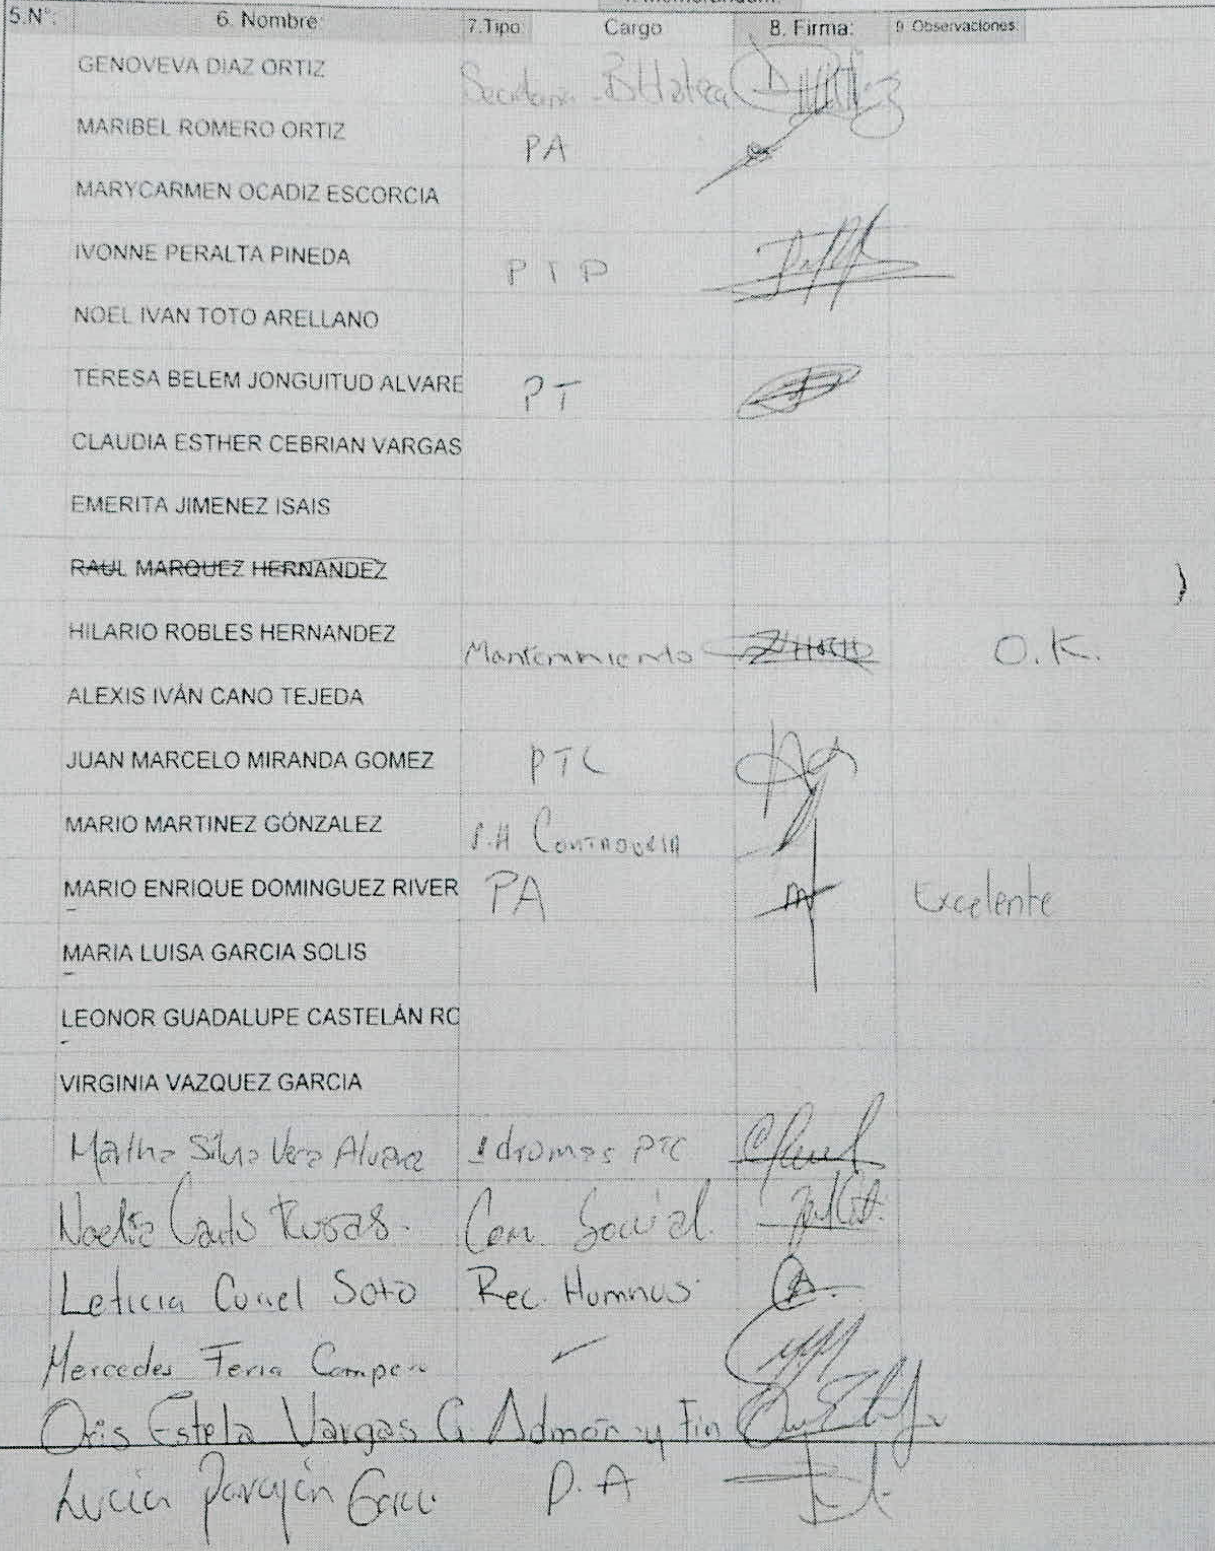 5.N°. 6. Nombre: 7.Tipo: Cargo 8. Firma: 9. Observaciones:
GENOVEVA DIAZ ORTIZ
MARIBEL ROMERO ORTIZ PA
MARYCARMEN OCADIZ ESCORCIA
IVONNE PERALTA PINEDA PTP
NOEL IVAN TOTO ARELLANO
TERESA BELEM JONGUITUD ALVARE PT
CLAUDIA ESTHER CEBRIAN VARGAS
EMERITA JIMENEZ ISAIS
RAUL MARQUEZ HERNANDEZ
HILARIO ROBLES HERNANDEZ Mantenimiento O.K.
ALEXIS IVÁN CANO TEJEDA
JUAN MARCELO MIRANDA GOMEZ PTC
MARIO MARTINEZ GÓNZALEZ
MARIO ENRIQUE DOMINGUEZ RIVER PA Excelente
MARIA LUISA GARCIA SOLIS
LEONOR GUADALUPE CASTELÁN RO
VIRGINIA VAZQUEZ GARCIA
Martha Silvia Vera Idiomas PTC
Com. Social.
Leticia Soto Rec.
Mercedes Feria
Oris Estela Vargas G. Admon y Fin
Lucia P.A